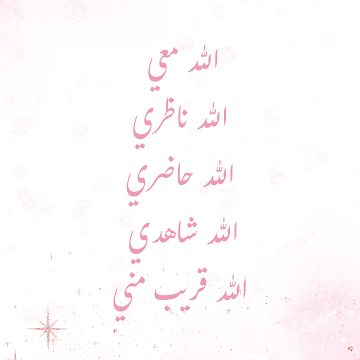 الله معي
الله ناظري
الله حاضري
الله شاهدي
الله قريب مني